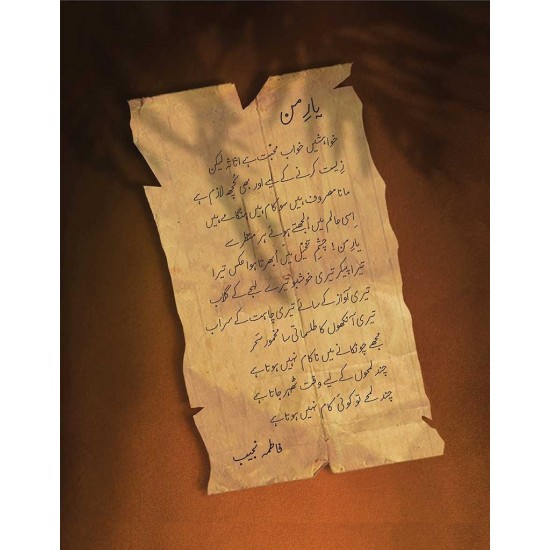 یارِ من
خواہشیں خواب محبت ہے اثاثہ لیکن
زیست کرنے کے لیے اور بھی کچھ لازم ہے
مانا مصروف ہیں سو کام ہیں ہنگامے ہیں
اِسی عالم میں اُلجھتے ہوئے ہر منظر سے
یارِ من! چشمِ تخیل میں اُبھرتا ہوا عکس تیرا
تیرا پیکر تیری خوشبو تیرے لہجے کے گلاب
تیری آواز کے سائے تیری چاہت کے سراب
تیری آنکھوں کا طلسماتی سا مخمور سحر
مجھے چونکانے میں ناکام نہیں ہوتا ہے
چند لمحوں کے لیے وقت ٹھہر جاتا ہے
چند لمحے تو کوئی کام نہیں ہوتا ہے
فاطمہ نجیب